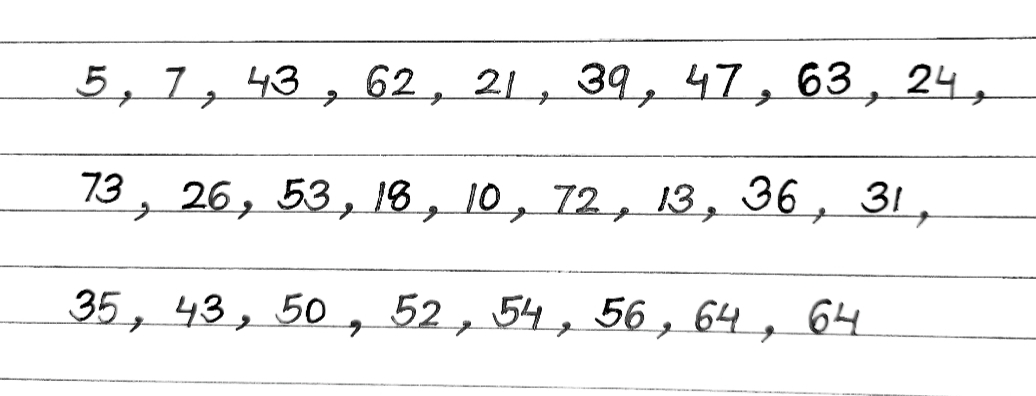 5, 7, 43, 62, 21, 39, 47, 63, 24,
73, 26, 53, 18, 10, 72, 13, 36, 31,
35, 43, 50, 52, 54, 56, 64, 64